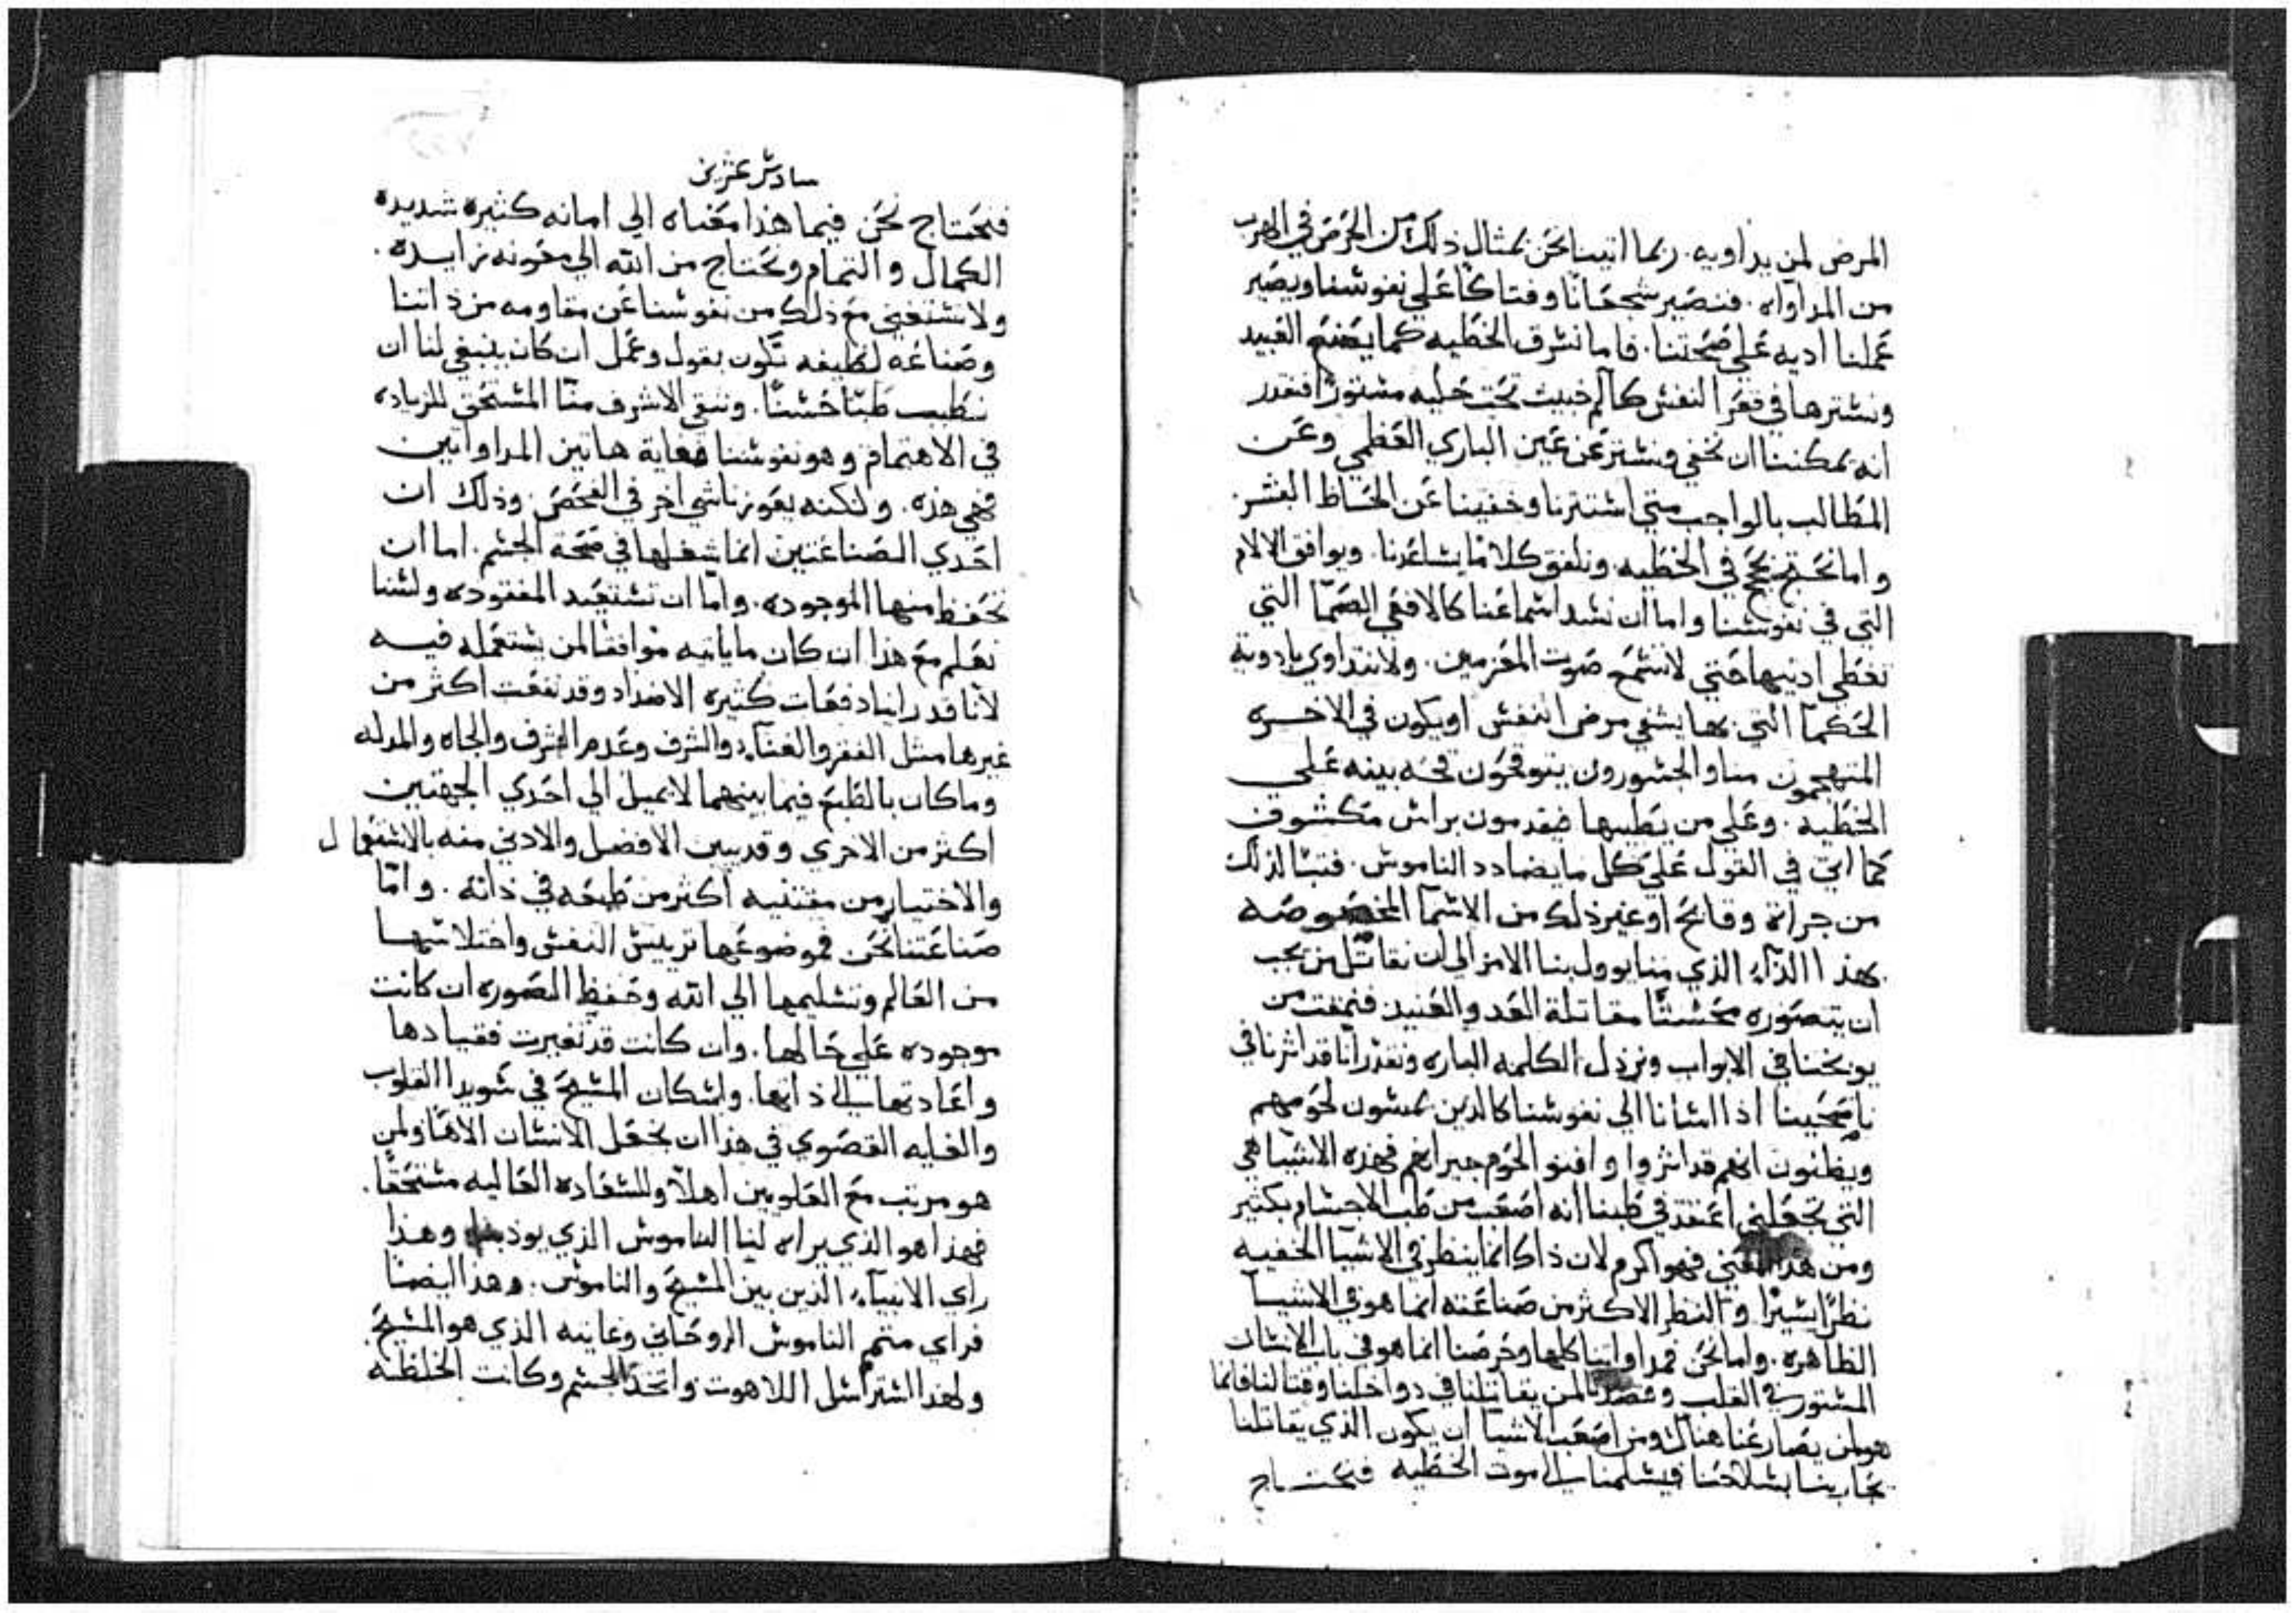 المرض لمن يداويه. ربما اتينا نحن بمثال ذلك من الحرص في الهرب
من المداواه. فنصير شجعانا وفتاكا علي نفوسنا ويصير
عملنا اديه علي صحتنا. فاما نسرق الخطيه كما يصنع العبيد
ونسترها في قعر النفس كالم خبيث تحت خليه مستورا فنقدر
انه يمكننا ان نخفي ونستتر عن عين الباري العظمي وعن
المطالب بالواجب متي استترنا وخفينا عن الحاظ البشر.
واما نحتج بحجج في الخطيه ونلفق كلاما يساعدنا. ويوافق الالام
التي في نفوسنا واما ان نسد اسماعنا كالافعي الصما التي
تغطي اذنيها حتي لا تسمع صوت المعزمين. ولا نتداوي بادوية
الحكما التي بها يشفي مرض النفس او يكون في الاخره
المتهجمون منا والجسورون يتوقحون قحه بينه علي
الخطيه. وعلي من يطبيها فيقدمون براس مكشوف
كما اتي في القول علي كل ما يضادد الناموس. فتبا لذلك
من جراة وقايح او غير ذلك من الاسما المخصوصه
بهذا الداء الذي منا يوول بنا الامر الي ان نقاتل من يجب
ان نتصوره محسنا مقاتلة العدو العنيد فنمقت من
يوبخنا في الابواب ونرذل الكلمه الباره ونقدر انا قد اثرنا في
ناصحينا اذا اسانا الي نفوسنا كالذين يمشون لحومهم
ويظنون انهم قد اثروا وافنو الحوم جيرانهم فهذه الاشيا هي
التي تجعلني اعتقد في طبنا انه اصعب من طب الاجسام بكثير
ومن هذا المعني فهو اكرم لان ذاك انما ينظر في الاشيا الخفيه
نظرا يسيرا والنظر الاكثر من صناعته انما هو في الاشيا
الظاهره. واما نحن فمداواتنا كلها وحرصنا انما هو في باب الانسان
المستور في القلب وقصدنا لمن يقاتلنا في دواخلنا وقتالنا فانما
هو لمن يصارعنا هناك ومن اصعب الاشيا ان يكون الذي يقاتلنا
يحاربنا بسلاحنا فيسلمنا الي موت الخطيه فنحتاج
سادس عشرين
فنحتاج نحن فيما هذا معناه الي امانه كثيره شديده
الكمال والتمام ونحتاج من الله الي معونه زايده.
ولا نستغني مع ذلك من نفوسنا عن مقاومه من ذاتنا
وصناعه لطيفه تكون بقول وعمل ان كان ينبغي لنا ان
نطبب طبا حسنا. وننقي الاشرف منا المستحق للزياده
في الاهتمام وهو نفوسنا فغاية هاتين المداواتين
فهي هذه. ولكنه يعوزنا شي اخر في الفحص وذلك ان
احدي الصناعتين انما شغلها في صحة الجسم. اما ان
تحفظ منها الموجوده. واما ان تستعيد المفقوده ولسنا
نعلم مع هذا ان كان ما ياتيه موافقا لمن يستعمله فيه
لانا قد راينا دفعات كثيره الاضداد وقد نفعت اكثر من
غيرها مثل الفقر والغناء والشرف وعدم الشرف والجاه والمدله
وما كان بالطبع فيما بينهما لا يميل الي احدي الجهتين
اكثر من الاخري وقد يبين الافضل والادني منه بالاستعمال
والاختيار من مقتنيه اكثر من طبعه في ذاته. واما
صناعتنا نحن فموضوعها تربيش النفس واختلاسها
من العالم وتسليمها الي الله وحفظ الصوره ان كانت
موجوده علي حالها. وان كانت قد تغيرت فقيادها
واعادتها الي ذاتها. واسكان المسيح في سويدا القلوب
والغايه القصوي في هذا ان نجعل الانسان الاها ولمن
هو مرتب مع العلويين اهلا وللسعاده العاليه مستحقا.
فهذا هو الذي يراه لنا الناموس الذي يودبنا وهذا
راي الانبياء الذين بين المسيح والناموس. وهذا ايضا
فراي متمم الناموس الروحاني وغايته الذي هو المسيح.
ولهذا استرسل اللاهوت واتخد الجسم وكانت الخلطه